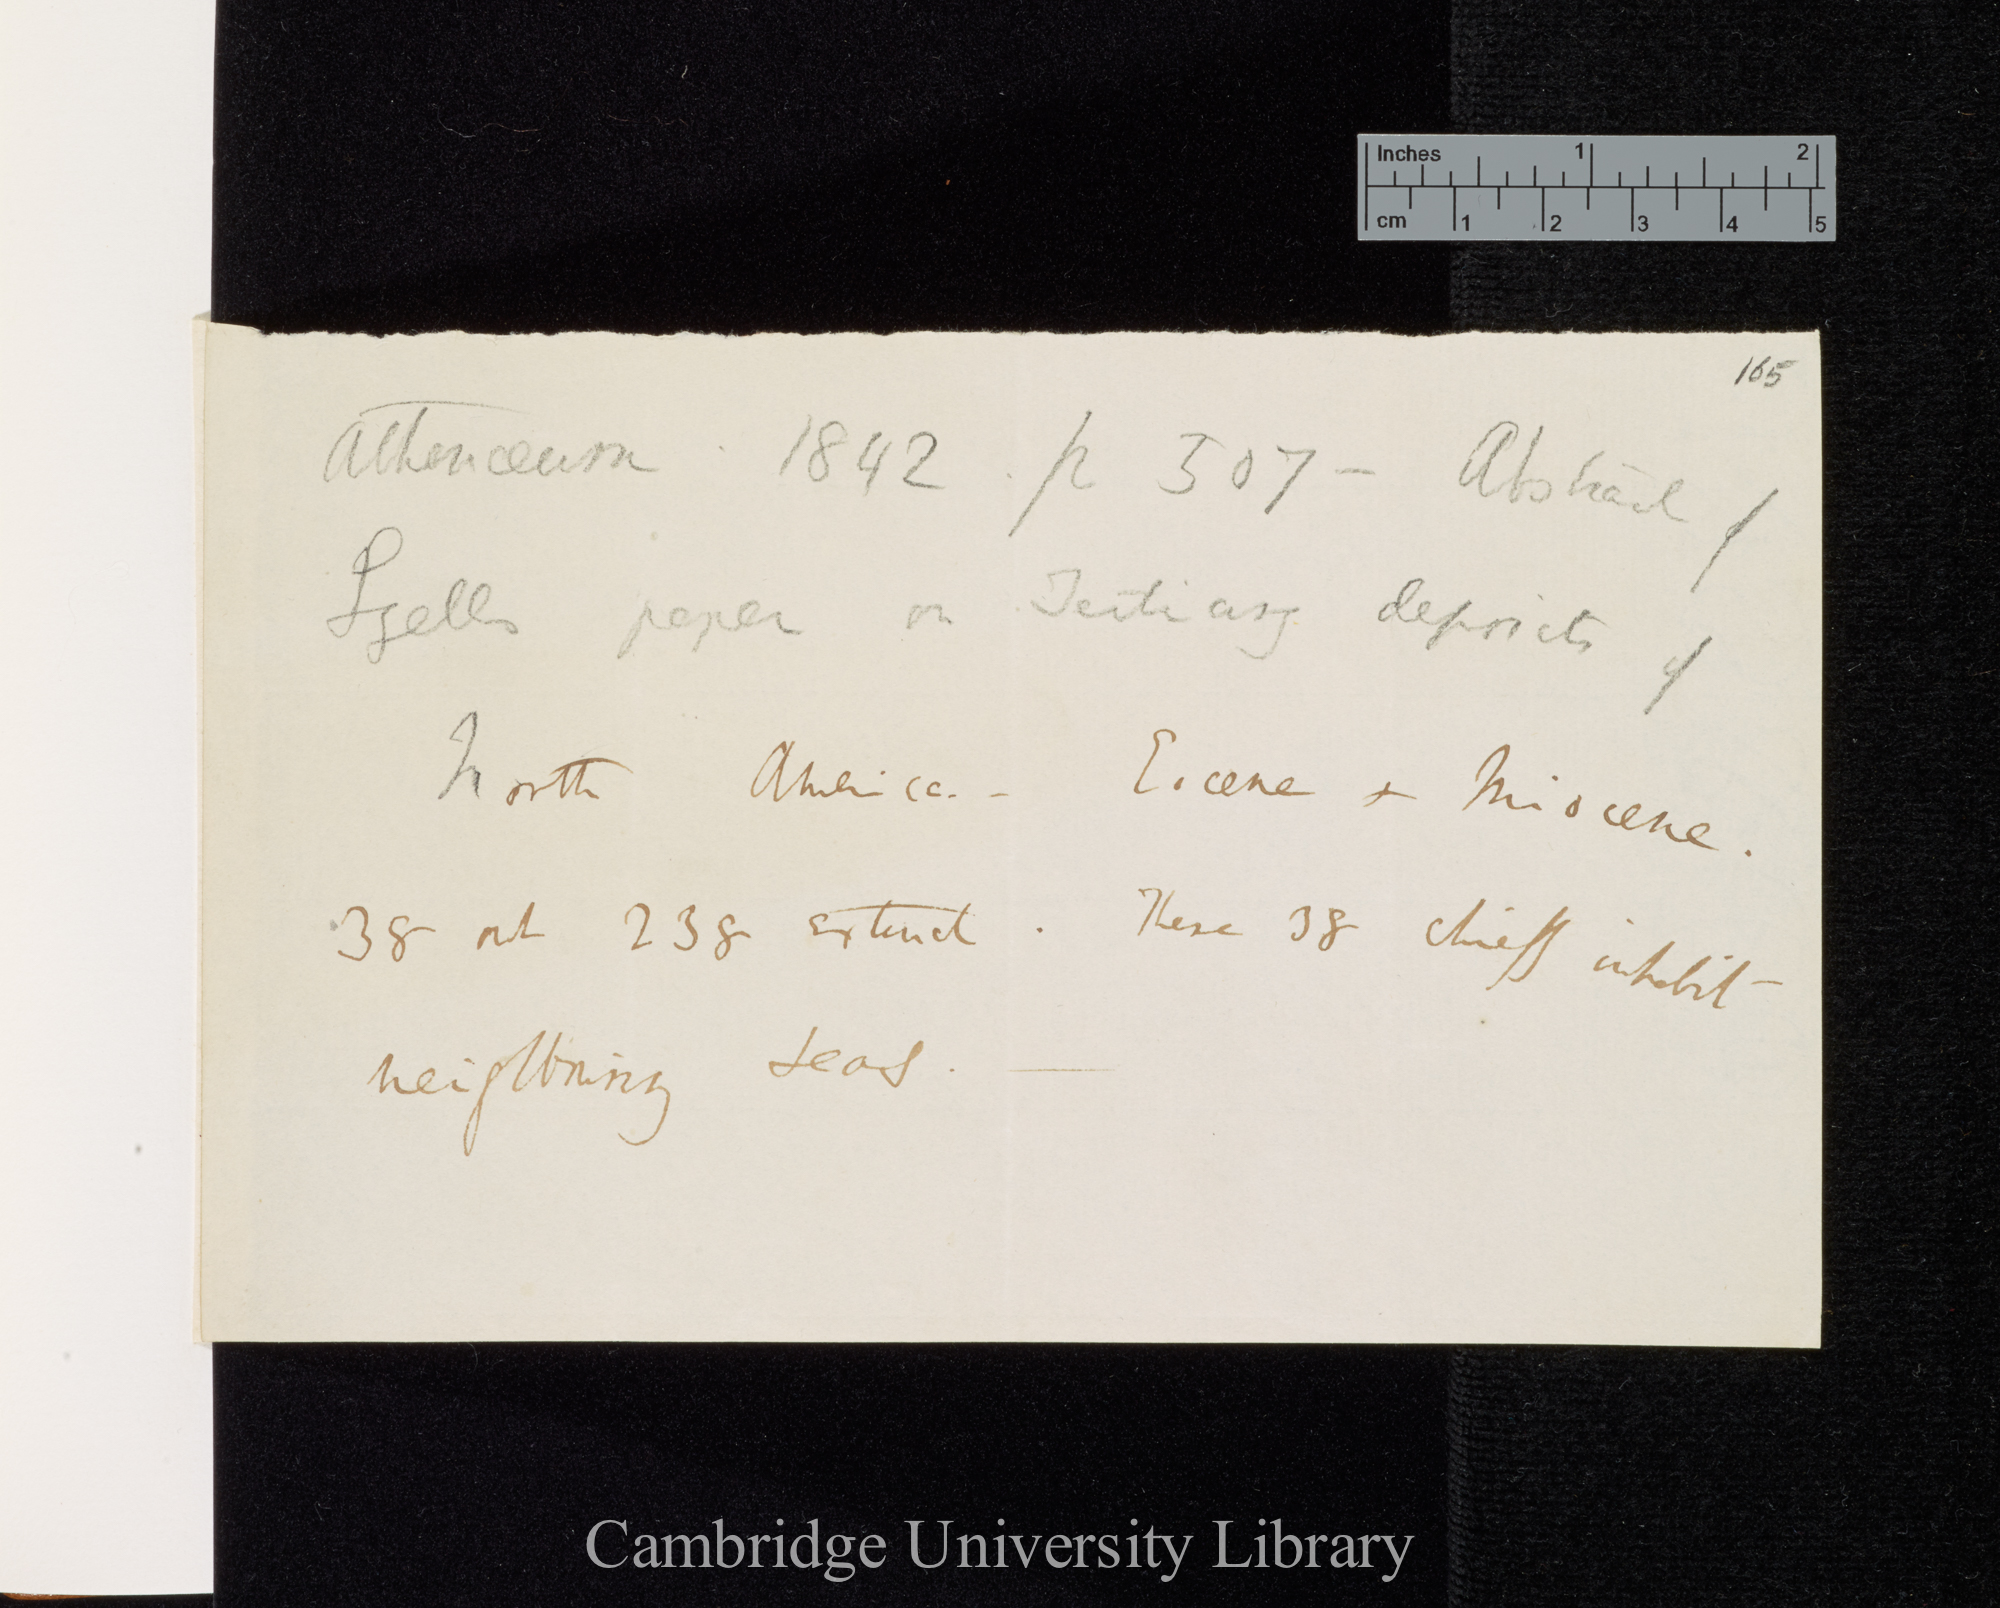 Inches 1 2
cm 1 2 3 4 5
165
Athenæum . 1842 . p 507 – Abstract of
Lyells paper on Tertiary deposits of
North America. – Eocene + Miocene.
38 out 238 extinct . These 38 chiefly inhabit –
neighbouring seas. —
Cambridge University Library